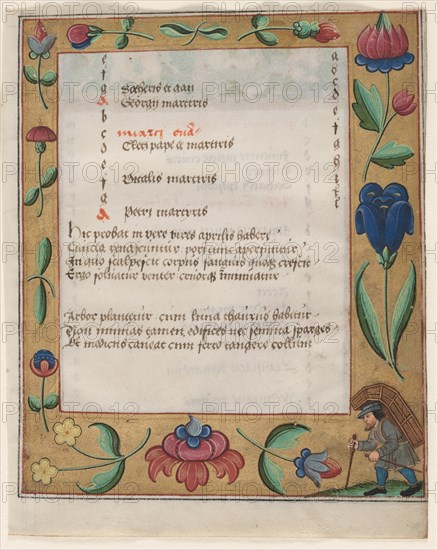 e
f
g Sothеris et gaii
A Georgij martiris
b
c marci eua
d Cleti pape et martiris
e
f Vitalis martiris
g
A Petri martyris
Hic probat in vere vires aprilis habere
Cuncta renascuntur pori tunc aperiuntur
In quo scalpescit corpus sanguis quoque crescit
Ergo soluatur venter cruorque minuatur
Arbor plantetur cum luna thaurus habetur
Non minuas tamen edifices nec semina spargas
Et medicus caueat cum ferro tangere collum
a
b
c
d
e
f
g
h
i
k